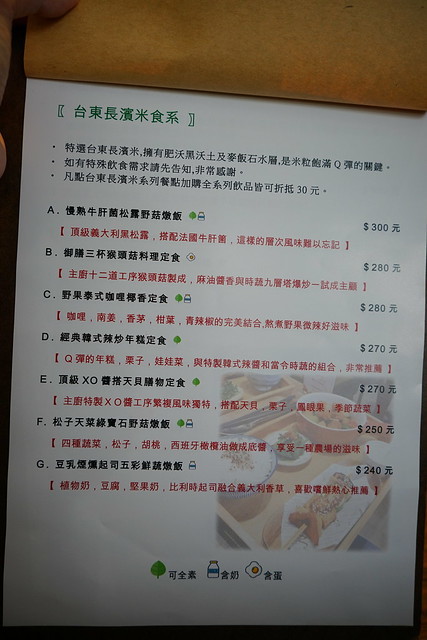 〖 台東長濱米食系 〗
· 特選台東長濱米,擁有肥沃黑沃土及麥飯石水層,是米粒飽滿Q彈的關鍵。
· 如有特殊飲食需求請先告知,非常感謝。
· 凡點台東長濱米系列餐點加購全系列飲品皆可折抵30元。
A. 慢熟牛肝菌松露野菇燉飯 $300元
【 頂級義大利黑松露，搭配法國牛肝菌，這樣的層次風味難以忘記 】
B. 御膳三杯猴頭菇料理定食 $280元
【 主廚十二道工序猴頭菇製成，麻油醬香與時蔬九層塔爆炒一試成主顧 】
C. 野果泰式咖哩椰香定食 $280元
【 咖哩，南姜，香茅，柑葉，青辣椒的完美結合,熬煮野果微辣好滋味 】
D. 經典韓式辣炒年糕定食 $270元
【 Q彈的年糕，栗子，娃娃菜，與特製韓式辣醬和當令時蔬的組合，非常推薦 】
E. 頂級XO醬搭天貝膳物定食 $270元
【 主廚特製XO醬工序繁複風味獨特，搭配天貝，栗子，鳳眼果，季節蔬菜 】
F. 松子天菜綠寶石野菇燉飯 $250元
【 四種蔬菜，松子，胡桃，西班牙橄欖油做成底醬，享受一種農場的滋味 】
G. 豆乳煙燻起司五彩鮮蔬燉飯 $240元
【 植物奶，豆腐，堅果奶，比利時起司融合義大利香草，喜歡嚐鮮熱心推薦 】
可全素 含奶 含蛋